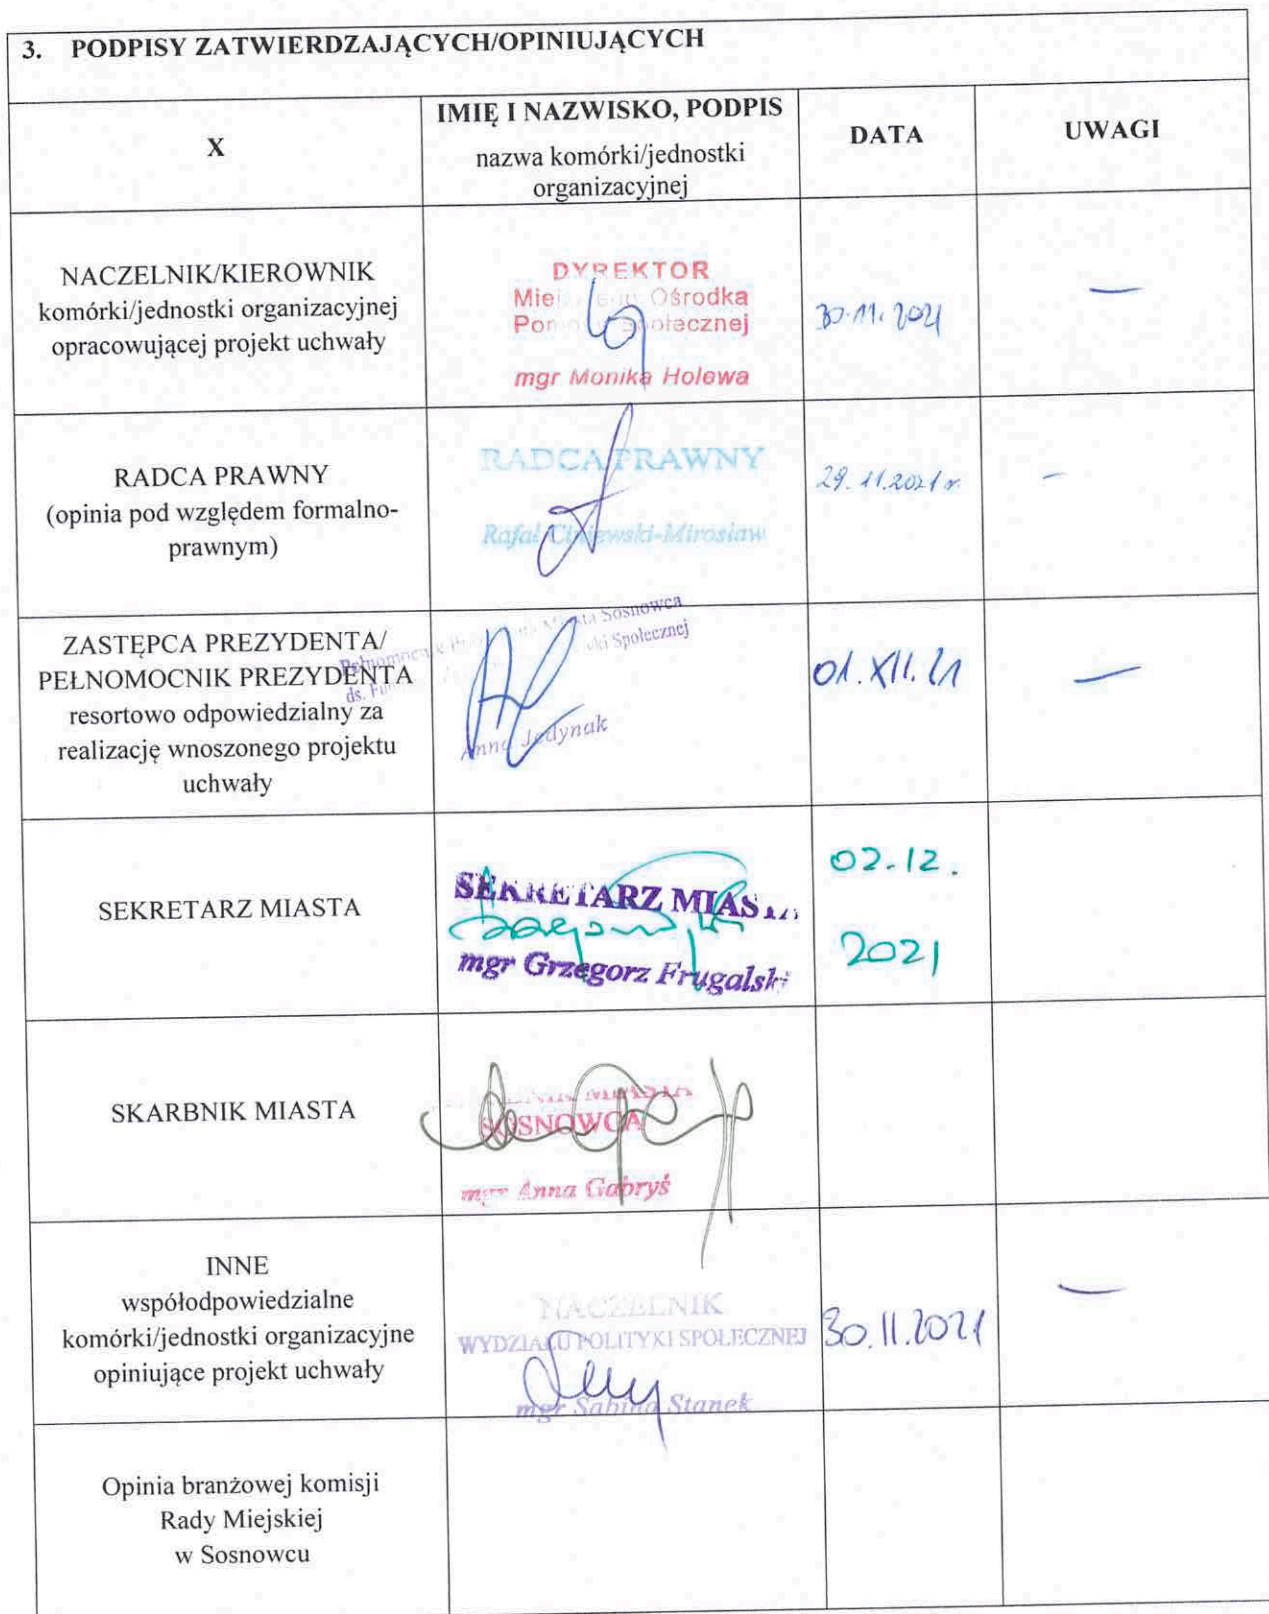 3. PODPISY ZATWIERDZAJĄCYCH/OPINIUJĄCYCH
X
IMIĘ I NAZWISKO, PODPIS
nazwa komórki/jednostki
organizacyjnej
DATA
UWAGI
NACZELNIK/KIEROWNIK
komórki/jednostki organizacyjnej
opracowującej projekt uchwały
DYREKTOR
Ośrodka
mgr Monika Holewa
30.11.2021
—
RADCA PRAWNY
(opinia pod względem formalno-
prawnym)
RADCA PRAWNY
Rafał
29.11.2021 r.
–
ZASTĘPCA PREZYDENTA/
PEŁNOMOCNIK PREZYDENTA
resortowo odpowiedzialny za
realizację wnoszonego projektu
uchwały
Miasta Sosnowca
Społecznej
ds.
Anna Jedynak
01.XII.21
—
SEKRETARZ MIASTA
SEKRETARZ MIASTA
mgr Grzegorz Frugalski
02.12.
2021
SKARBNIK MIASTA
MIASTA
SOSNOWCA
mgr Anna Gabryś
INNE
współodpowiedzialne
komórki/jednostki organizacyjne
opiniujące projekt uchwały
NACZELNIK
WYDZIAŁU POLITYKI SPOŁECZNEJ
mgr Sabina Stanek
30.11.2021
—
Opinia branżowej komisji
Rady Miejskiej
w Sosnowcu